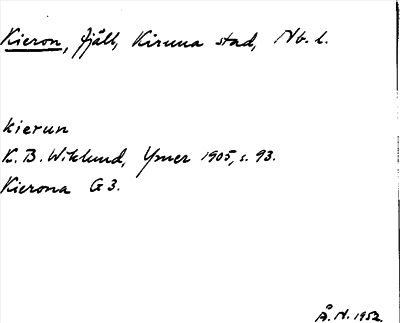 Kieron, fjäll, Kiruna stad, Nb. l.
kierun
K. B. Wiklund, Ymer 1905, s. 93.
Kierona G 3.
Å. N. 1952.